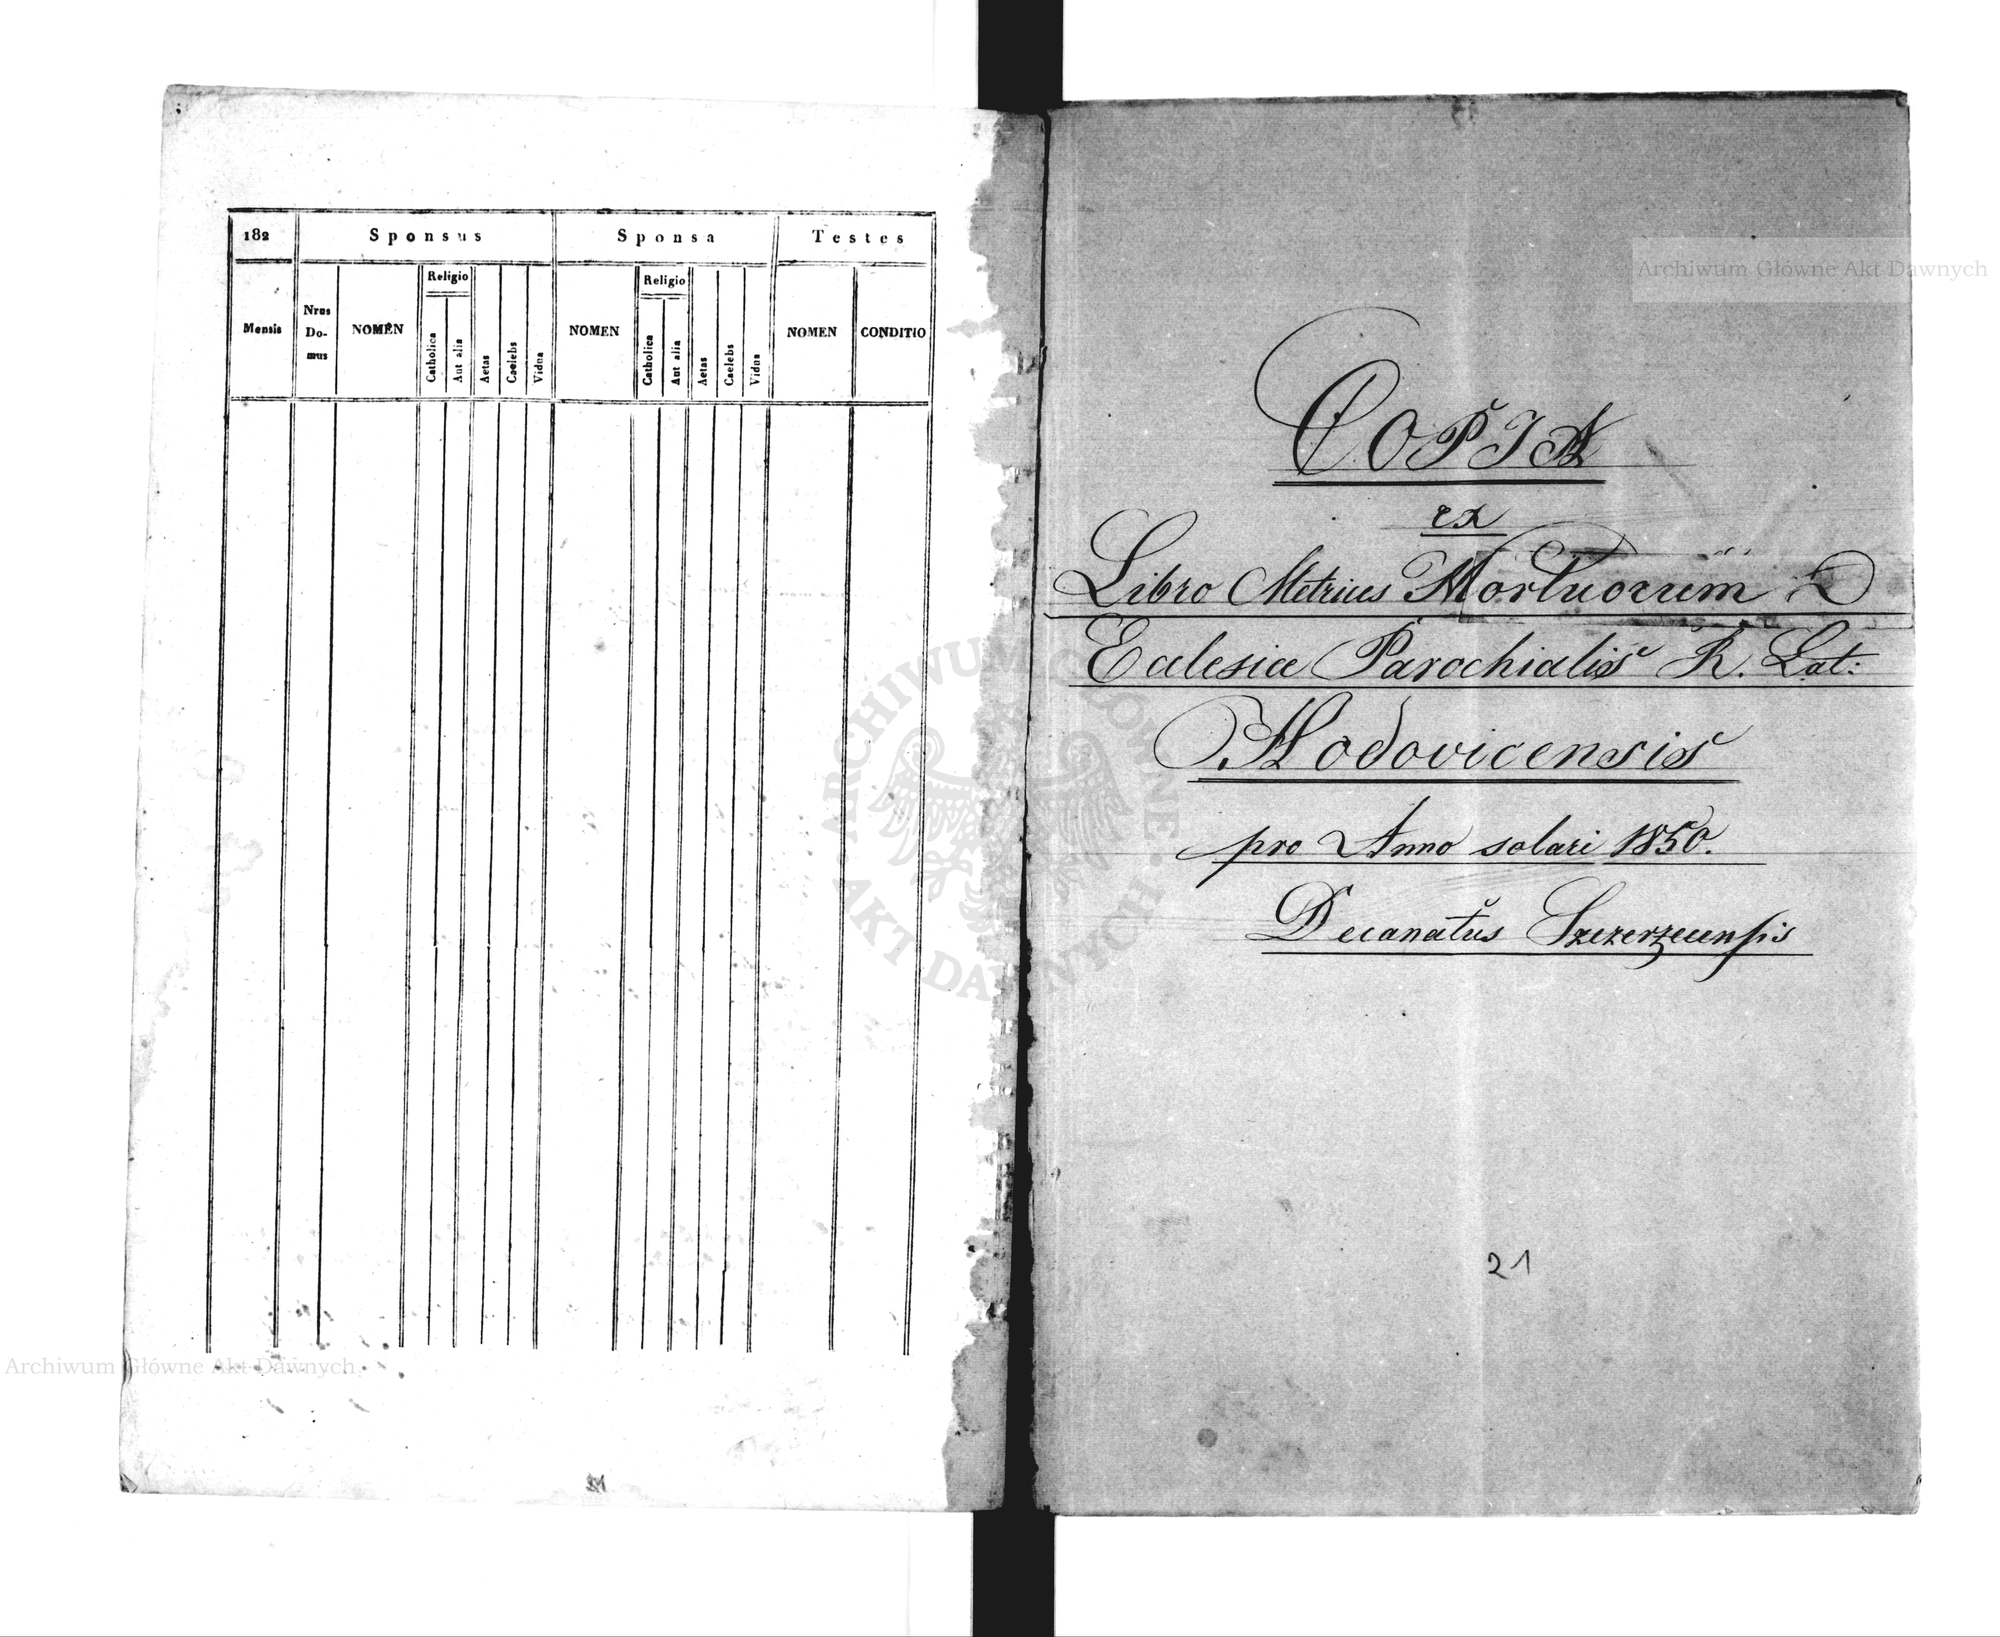 182
Sponsus
Sponsa
Testes
Mensis
Nrus Do- mus
NOMEN
Religio
Catholica
Aut alia
Aetas
Caelebs
Vidua
NOMEN
Religio
Catholica
Aut alia
Aetas
Caelebs
Vidua
NOMEN
CONDITIO
COPIA
ex
Libro Metrices Mortuorum
Eclesiæ Parochialis R. Lat:
Hodovicensis
pro Anno solari 1850.
Decanatŭs Szczerzecensis
21
21
Archiwum Główne Akt Dawnych
Archiwum Główne Akt Dawnych
ARCHIWUM GŁÓWNE AKT DAWNYCH